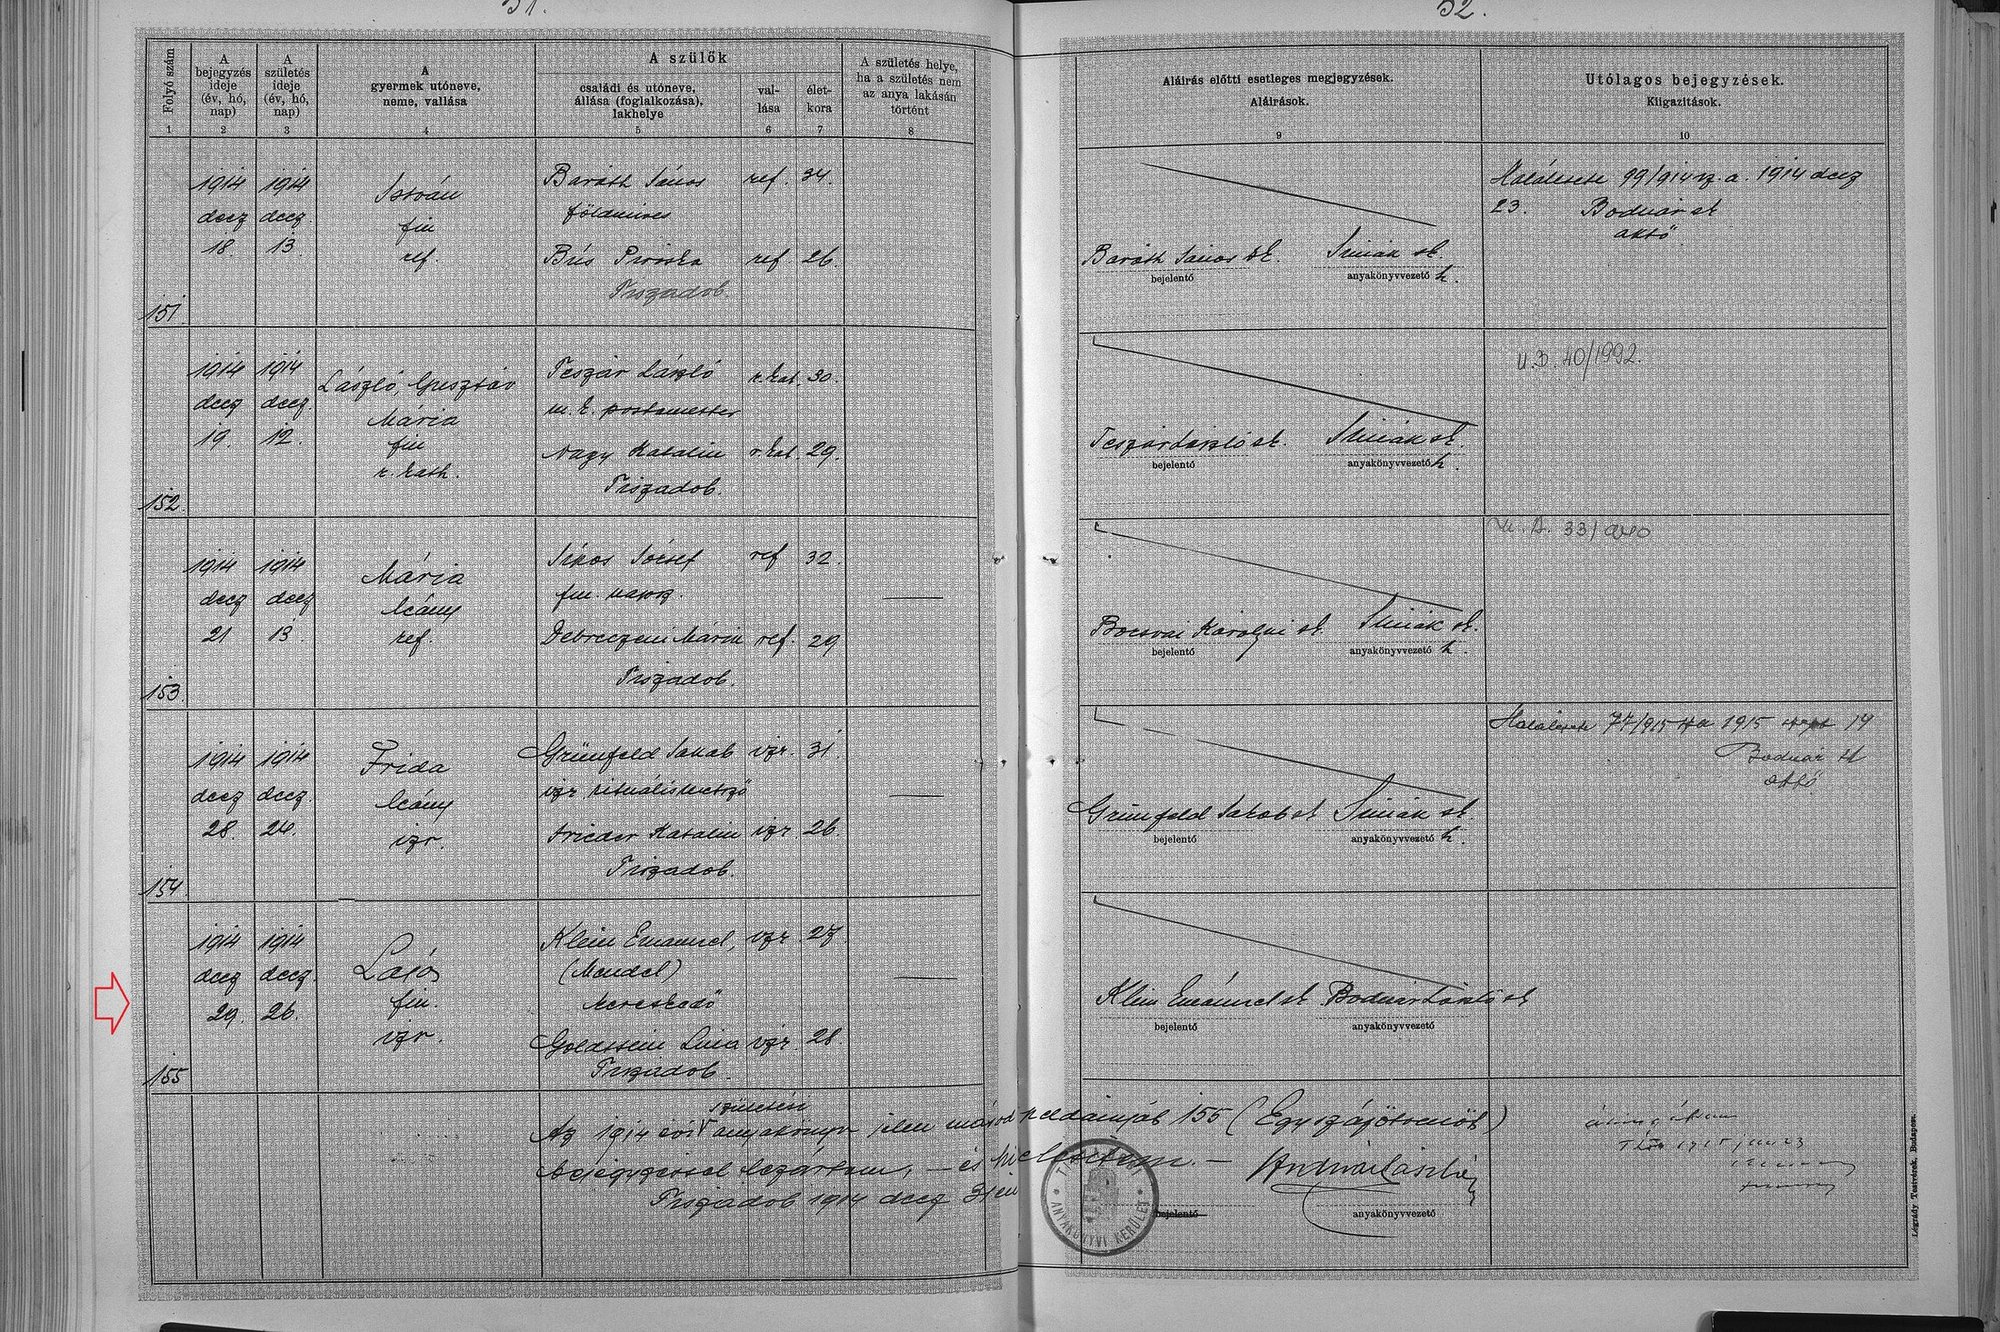 51.
Folyó szám
A bejegyzés ideje (év, hó, nap)
A születés ideje (év, hó, nap)
A gyermek utóneve, neme, vallása
A szülők
családi és utóneve, állása (foglalkozása), lakhelye
val-lása
élet-kora
A születés helye, ha a születés nem az anya lakásán történt
1 2 3 4 5 6 7 8
151
1914 decz 18.
1914 decz. 13.
István
fiu
ref.
Baráth János ref. 34.
földmives
Bús Piroska ref 26.
Tiszadob.
152.
1914 decz 19.
1914 decz. 12.
László, Gusztáv
Mária
fiu
r. kath.
Teszár László r. kat. 30.
m. k. postamester
Nagy Katalin r. kat. 29.
Tiszadob.
153
1914 decz 21
1914 decz 13
Mária
leány
ref.
Sipos József ref 32.
Debreczeni Mária ref. 29
Tiszadob.
154
1914 decz 28.
1914 decz. 24.
Frida
leány
izr.
Grünfeld Jakab izr. 31.
izr rituálismetsző
Frieder Katalin izr 26.
Tiszadob.
155
1914 decz 29.
1914 decz. 26.
Lajos
fiu.
izr.
Klein Emanuel, izr. 27.
(Mendel)
kereskedő
Goldstein Lina izr. 28.
Tiszadob.
Az 1914 évi születési anyakönyv jelen másod példányát 155 (Egyszázötvenöt)
bejegyzéssel lezártam, – és hitelesitem. –
Tiszadob 1914 decz 31én
52.
Aláírás előtti esetleges megjegyzések.
Aláírások.
9
Utólagos bejegyzések.
Kiigazitások.
10
Baráth János sk. Simák sk.
bejelentő anyakönyvvezető h.
Halálesete 99/914 a. 1914 decz
23. Bodnár sk
Teszár László sk. Simák sk.
bejelentő anyakönyvvezető h.
U.D. 40/1992.
Bocsvai Károlyné sk. Simák sk.
bejelentő anyakönyvvezető h.
Grünfeld Jakab sk Simák sk.
bejelentő anyakönyvvezető h.
Halálesete 77/915 1915 14
Bodnár sk
Klein Emánuel sk. Bodnár László sk
bejelentő anyakönyvvezető
Bodnár László
bejelentő anyakönyvvezető
ANYAKÖNYVI KERÜLET
Légrády Testvérek, Budapest.